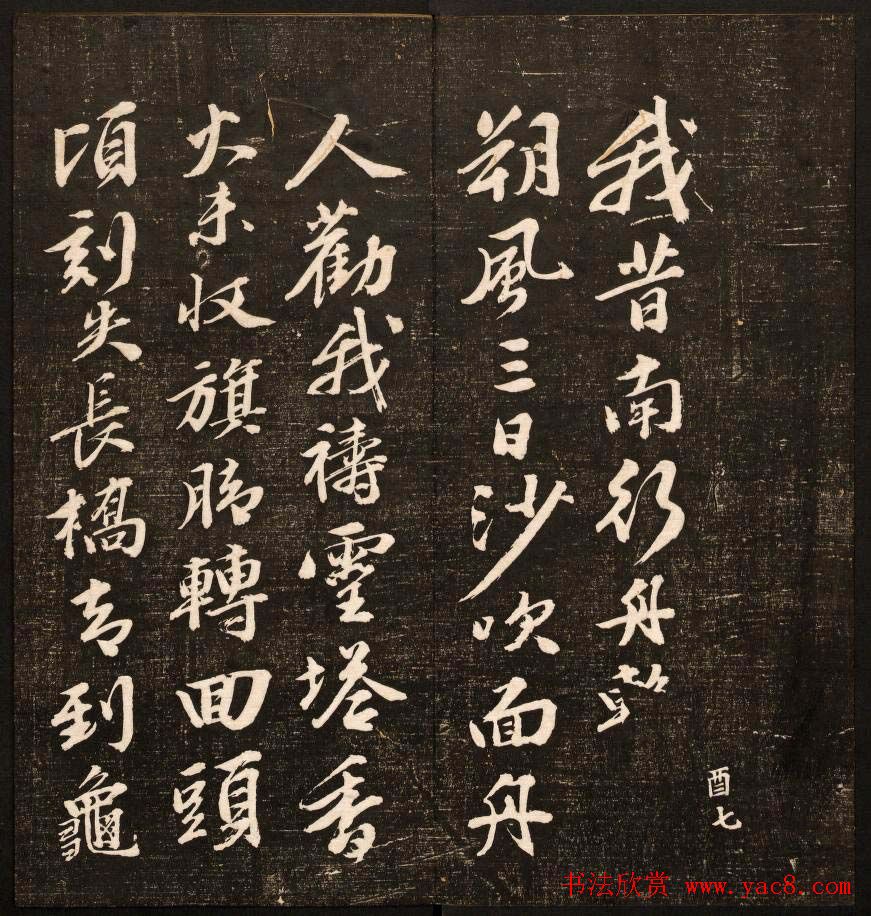 我昔南行舟
朔風三日沙吹面舟
人勸我禱靈塔香
火未收旗脚轉回頭
頃刻失長橋却到龜
酉七
书法欣赏 www.yac8.com